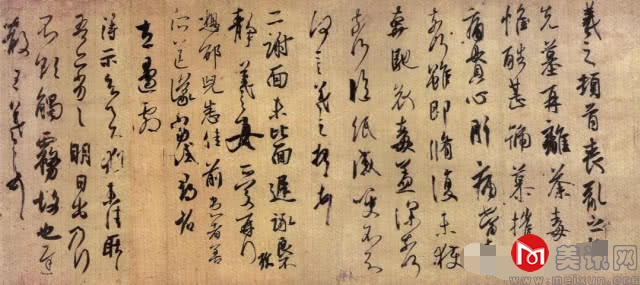 羲之頓首喪亂之
先墓再離荼毒
惟酷甚號慕摧
痛貫心肝痛當
奈何雖即脩復未獲
奔馳哀毒益深奈何
奈何臨紙感哽不知
何言羲之頓首
二謝面未比面遲詠良
靜羲之女愛再拜
想邵兒悉佳前患者善
所送議當試尋省
左邊劇
得示知足下猶未佳耿
吾亦劣劣明日出乃行
不欲觸霧故也遲
散王羲之頓首
美讯网
www.meixun.org